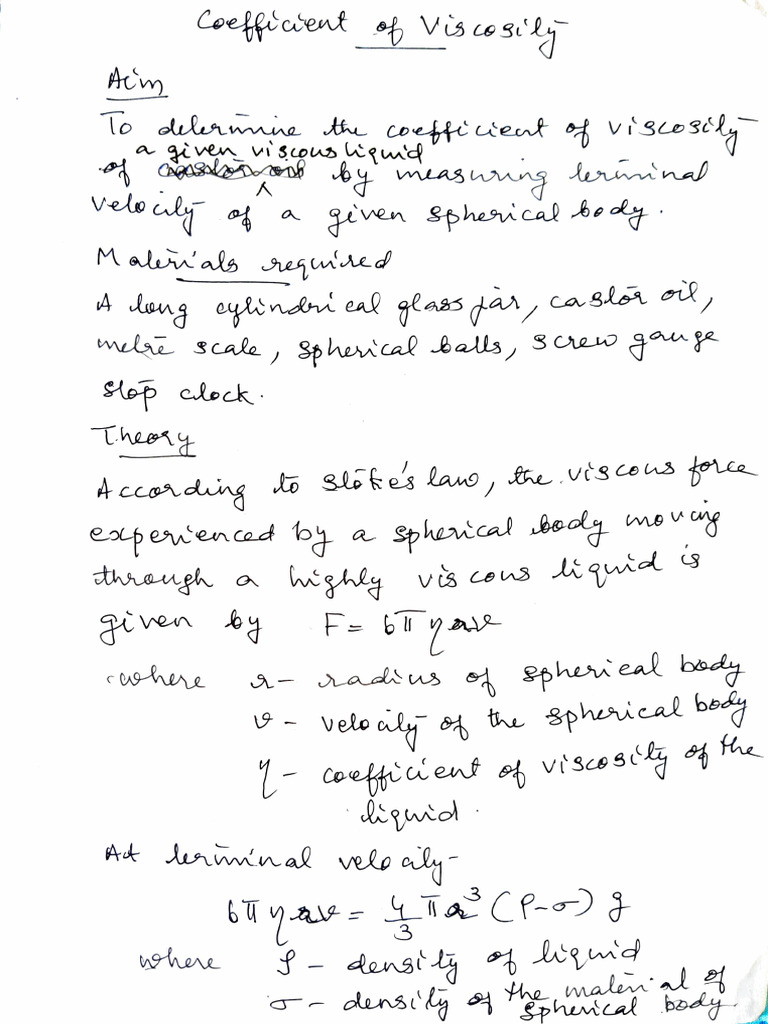 Coefficient of Viscosity
Aim
To determine the coefficient of viscosity
a given viscous liquid
of by measuring terminal
velocity of a given spherical body.
Materials required
A long cylindrical glass jar, castor oil,
metre scale, spherical balls, screw gauge
stop clock.
Theory
According to Stoke's law, the viscous force
experienced by a spherical body moving
through a highly viscous liquid is
given by F = 6πηrv
where r - radius of spherical body
v - velocity of the spherical body
η - coefficient of viscosity of the
liquid.
At terminal velocity
6πηrv = 4/3 πr³ (ρ-σ) g
where ρ - density of liquid
σ - density of the material of
spherical body.